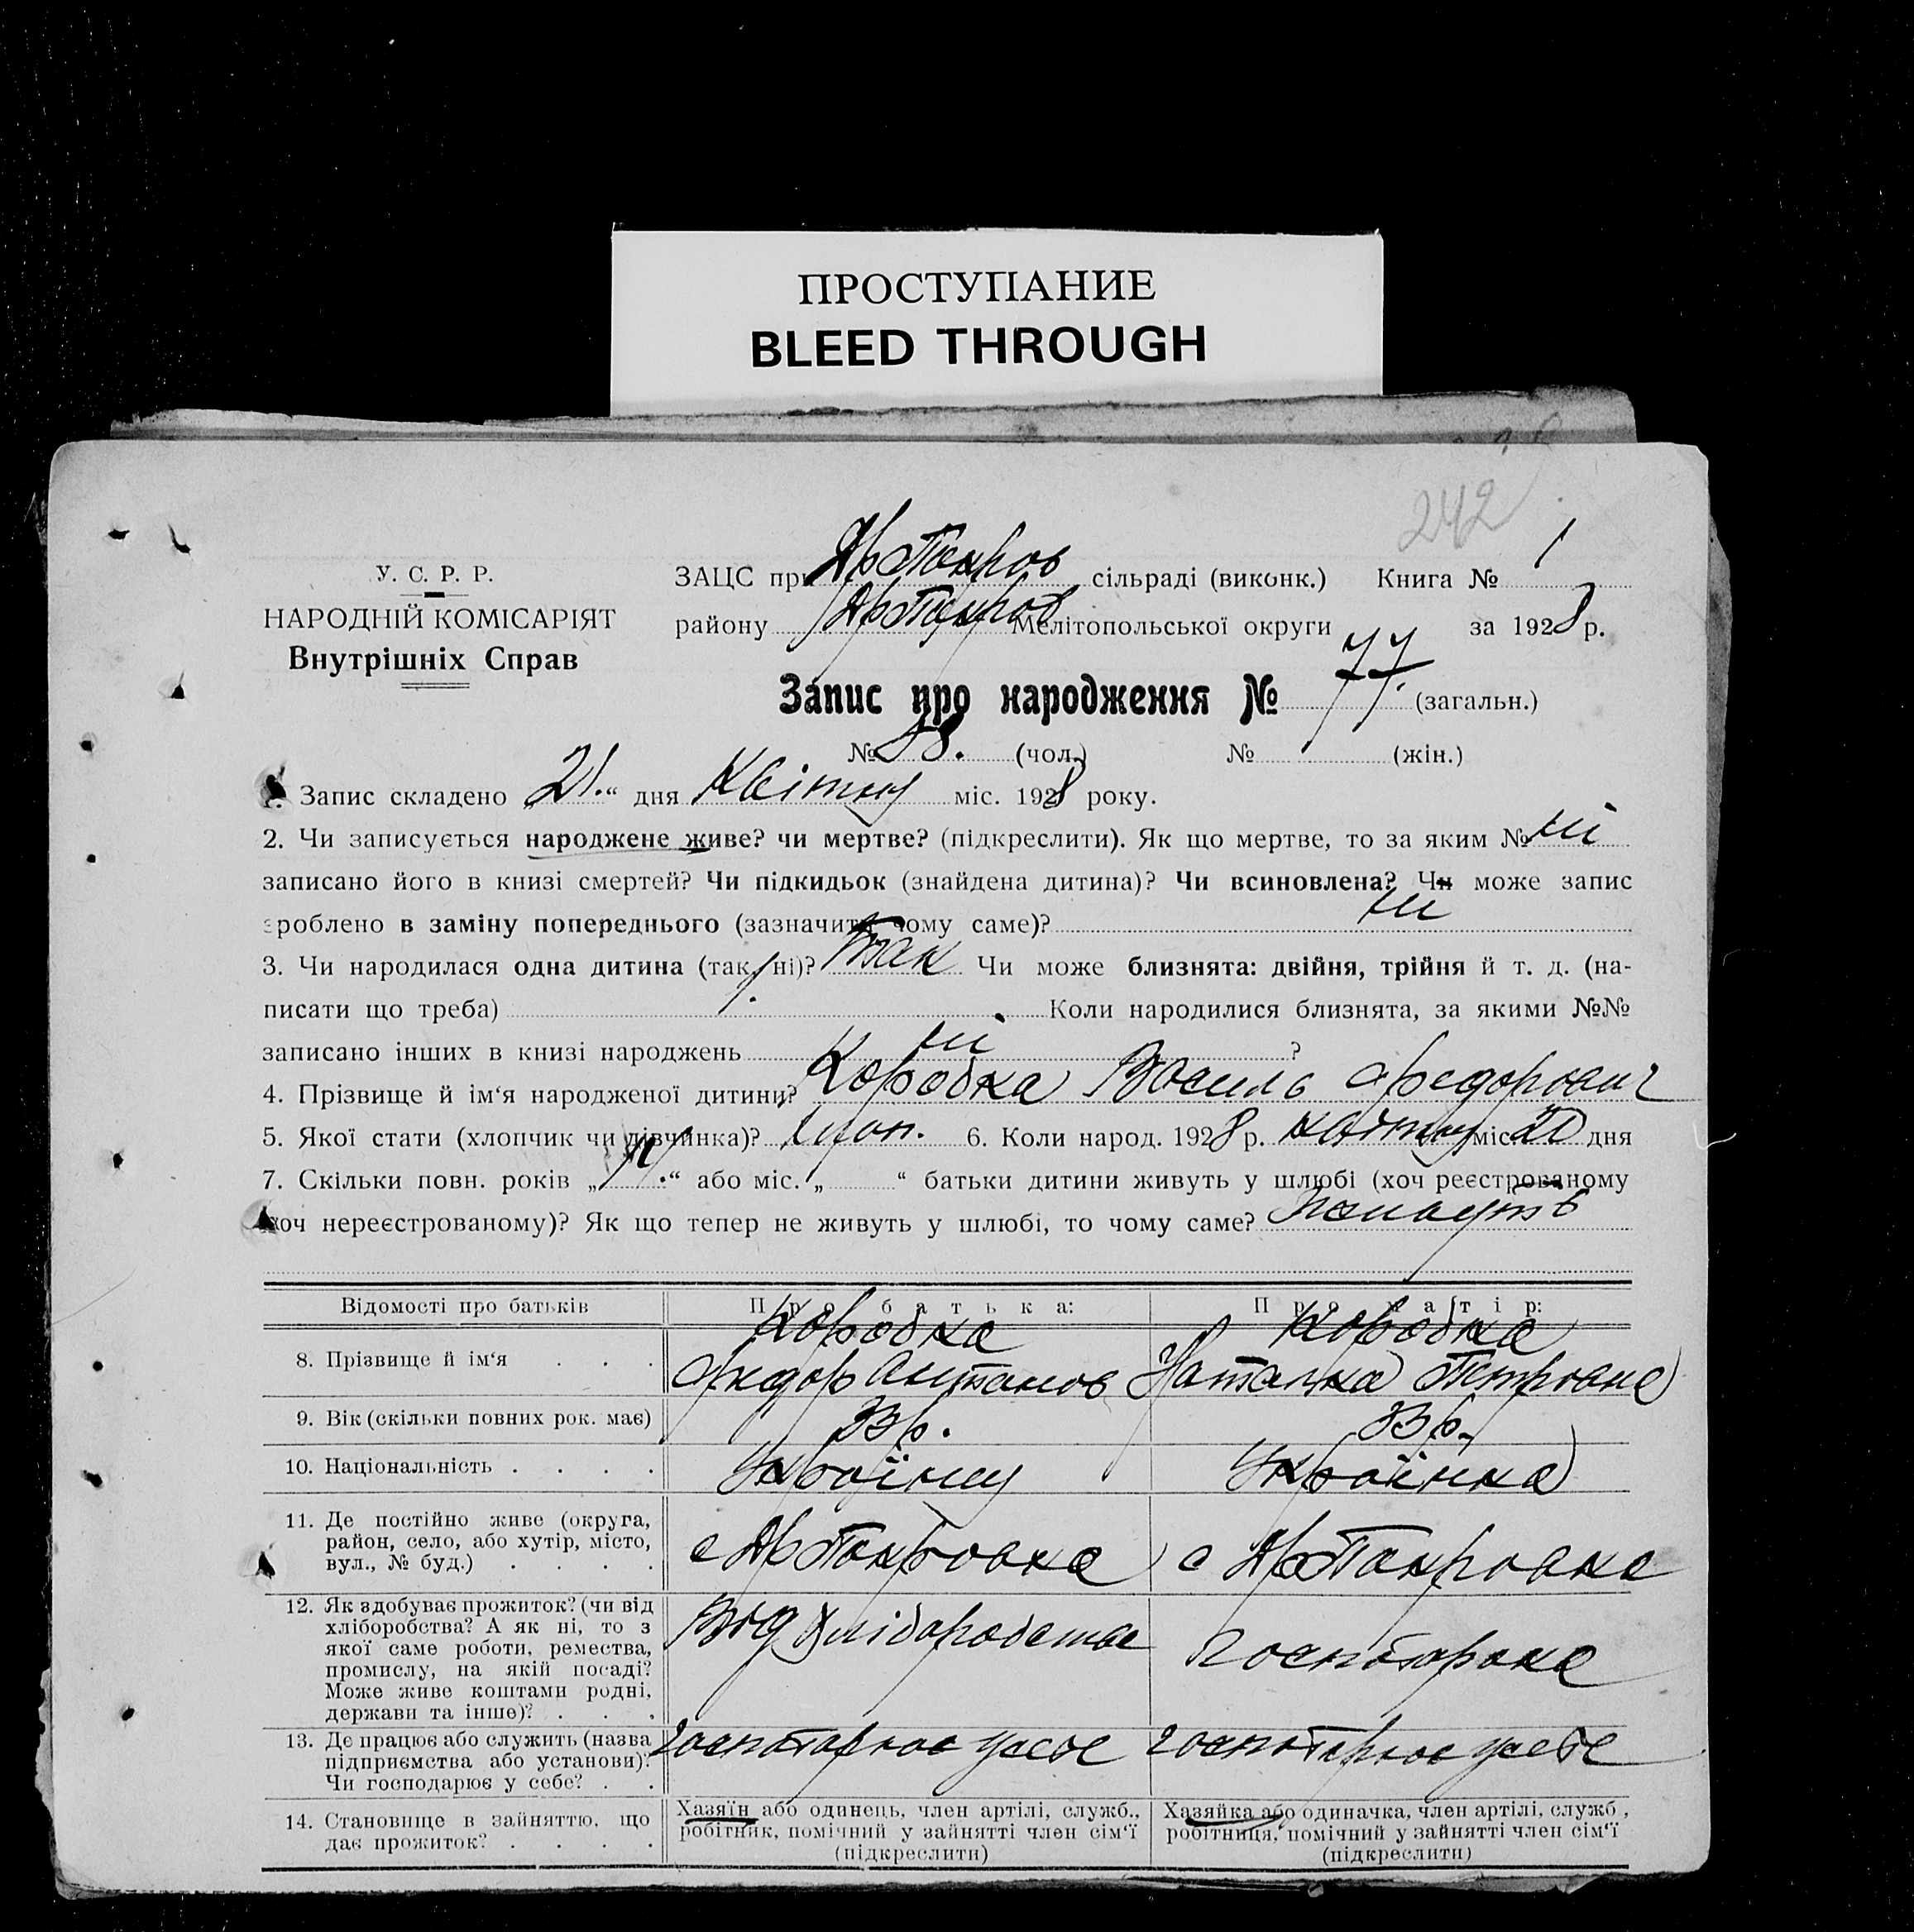 ПРОСТУПАНИЕ
BLEED THROUGH
242
У. С. Р. Р.
НАРОДНІЙ КОМІСАРІЯТ
Внутрішніх Справ
ЗАЦС при сільраді (виконк.) Книга № 1
району Мелітопольської округи за 1928 р.
Запис про народження № 77. (загальн.)
№ (чол.) № (жін.)
1. Запис складено „21.“ дня Квітня міс. 1928 року.
2. Чи записується народжене живе? чи мертве? (підкреслити). Як що мертве, то за яким № ні
записано його в книзі смертей? Чи підкидьок (знайдена дитина)? Чи всиновлена? Чи може запис
зроблено в заміну попереднього (зазначити чому саме)? ні
3. Чи народилася одна дитина (так, ні)? Так Чи може близнята: двійня, трійня й т. д. (на-
писати що треба) Коли народилися близнята, за якими №№
записано інших в книзі народжень ні ?
4. Прізвище й ім‘я народженої дитини? Коробка Василь Федорович
5. Якої стати (хлопчик чи дівчинка)? Хлоп. 6. Коли народ. 1928 р. квітня міс. 20 дня
7. Скільки повн. років „ “ або міс. „ “ батьки дитини живуть у шлюбі (хоч реєстрованому
хоч нереєстрованому)? Як що тепер не живуть у шлюбі, то чому саме?
Відомості про батьків
Про батька:
Про матір:
8. Прізвище й ім‘я . . .
Коробка
Федор Антанов
Коробка
Наталка Петровна
9. Вік (скільки повних рок. має)
10. Національність . . . .
Україець
Українка
11. Де постійно живе (округа,
район, село, або хутір, місто,
вул., № буд.) . . . .
12. Як здобуває прожиток? (чи від
хліборобства? А як ні, то з
якої саме роботи, ремества,
промислу, на якій посаді?
Може живе коштами родні,
держави та інше)? . . .
Від хліборобства
госпотарка
13. Де працює або служить (назва
підприємства або установи)?
Чи господарює у себе? . .
госпотарює усебе
госпотарює усебе
14. Становище в зайняттю, що
дає прожиток? . . . .
Хазяїн або одинець, член артілі, служб.,
робітник, помічний у зайнятті член сім‘ї
(підкреслити)
Хазяйка або одиначка, член артілі, служб,
робітниця, помічний у зайнятті член сім‘ї
(підкреслити)